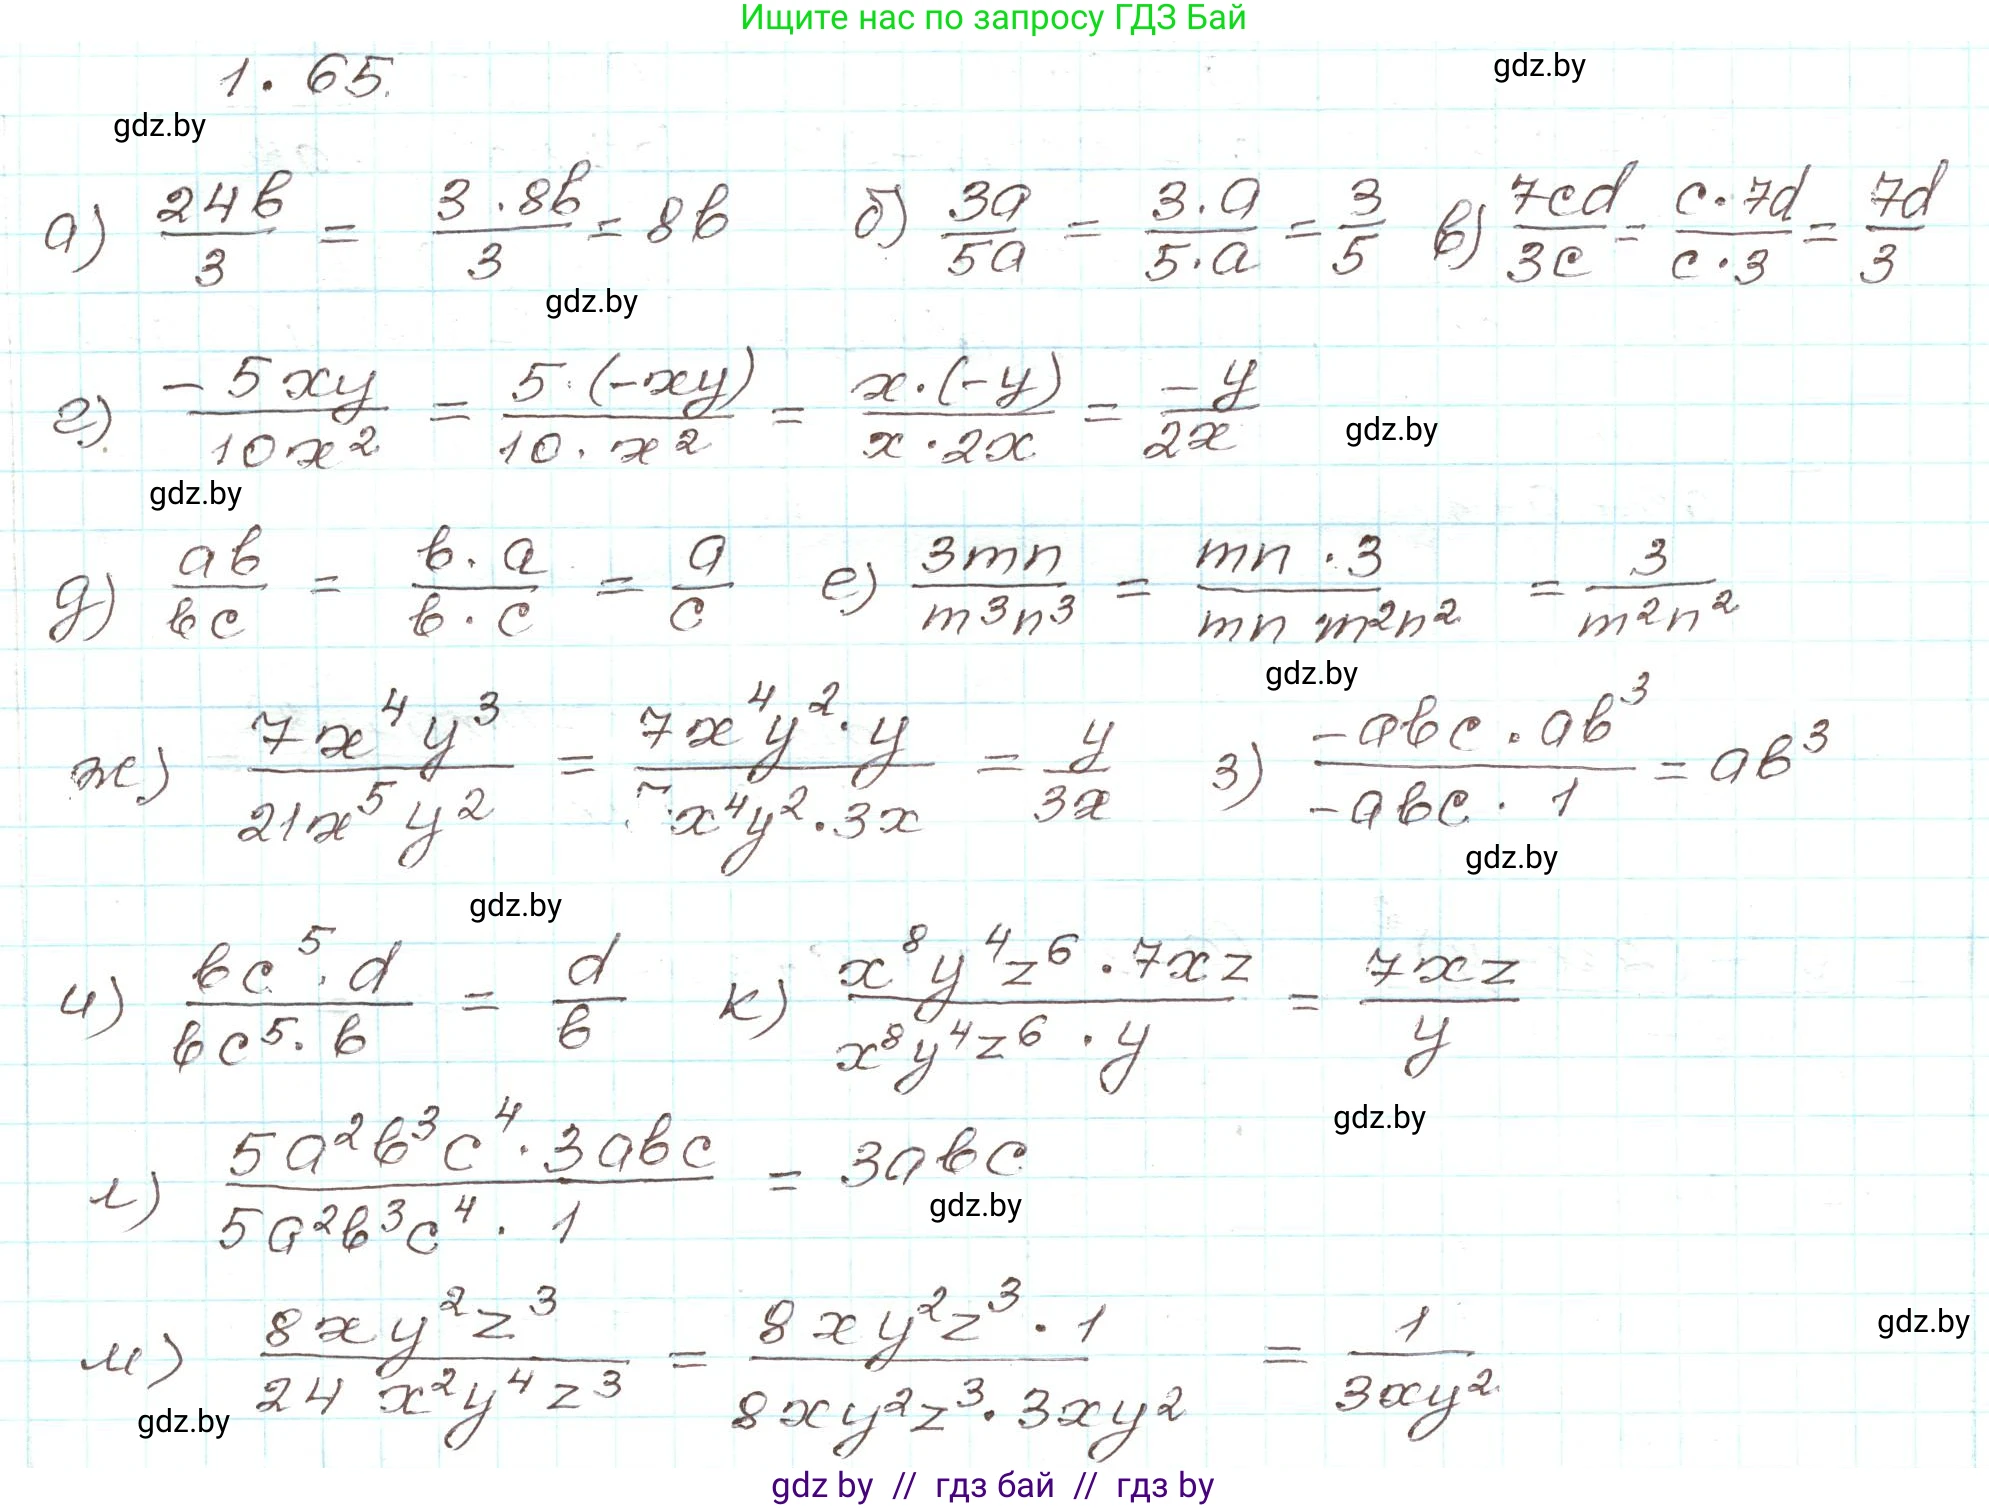 Ищите нас по запросу ГДЗ Бай
1. 65.
gdz.by
gdz.by
а) 24b/3 = 3·8b/3 = 8b б) 3a/5a = 3·a/5·a = 3/5 в) 7cd/3c = c·7d/c·3 = 7d/3
gdz.by
г) -5xy/10x² = 5·(-xy)/10·x² = x·(-y)/x·2x = -y/2x
gdz.by
gdz.by
д) ab/bc = b·a/b·c = a/c е) 3mn/m³n³ = mn·3/mn·m²n² = 3/m²n²
gdz.by
ж) 7x⁴y³/21x⁵y² = 7x⁴y²·y/7x⁴y²·3x = y/3x з) -abc·ab³/-abc·1 = ab³
gdz.by
gdz.by
и) bc⁵·d/bc⁵·b = d/b к) x⁸y⁴z⁶·7xz/x⁸y⁴z⁶·y = 7xz/y
gdz.by
л) 5a²b³c⁴·3abc/5a²b³c⁴·1 = 3abc
gdz.by
м) 8xy²z³/24x²y⁴z³ = 8xy²z³·1/8xy²z³·3xy² = 1/3xy²
gdz.by
gdz.by
gdz by // гдз бай // гдз by